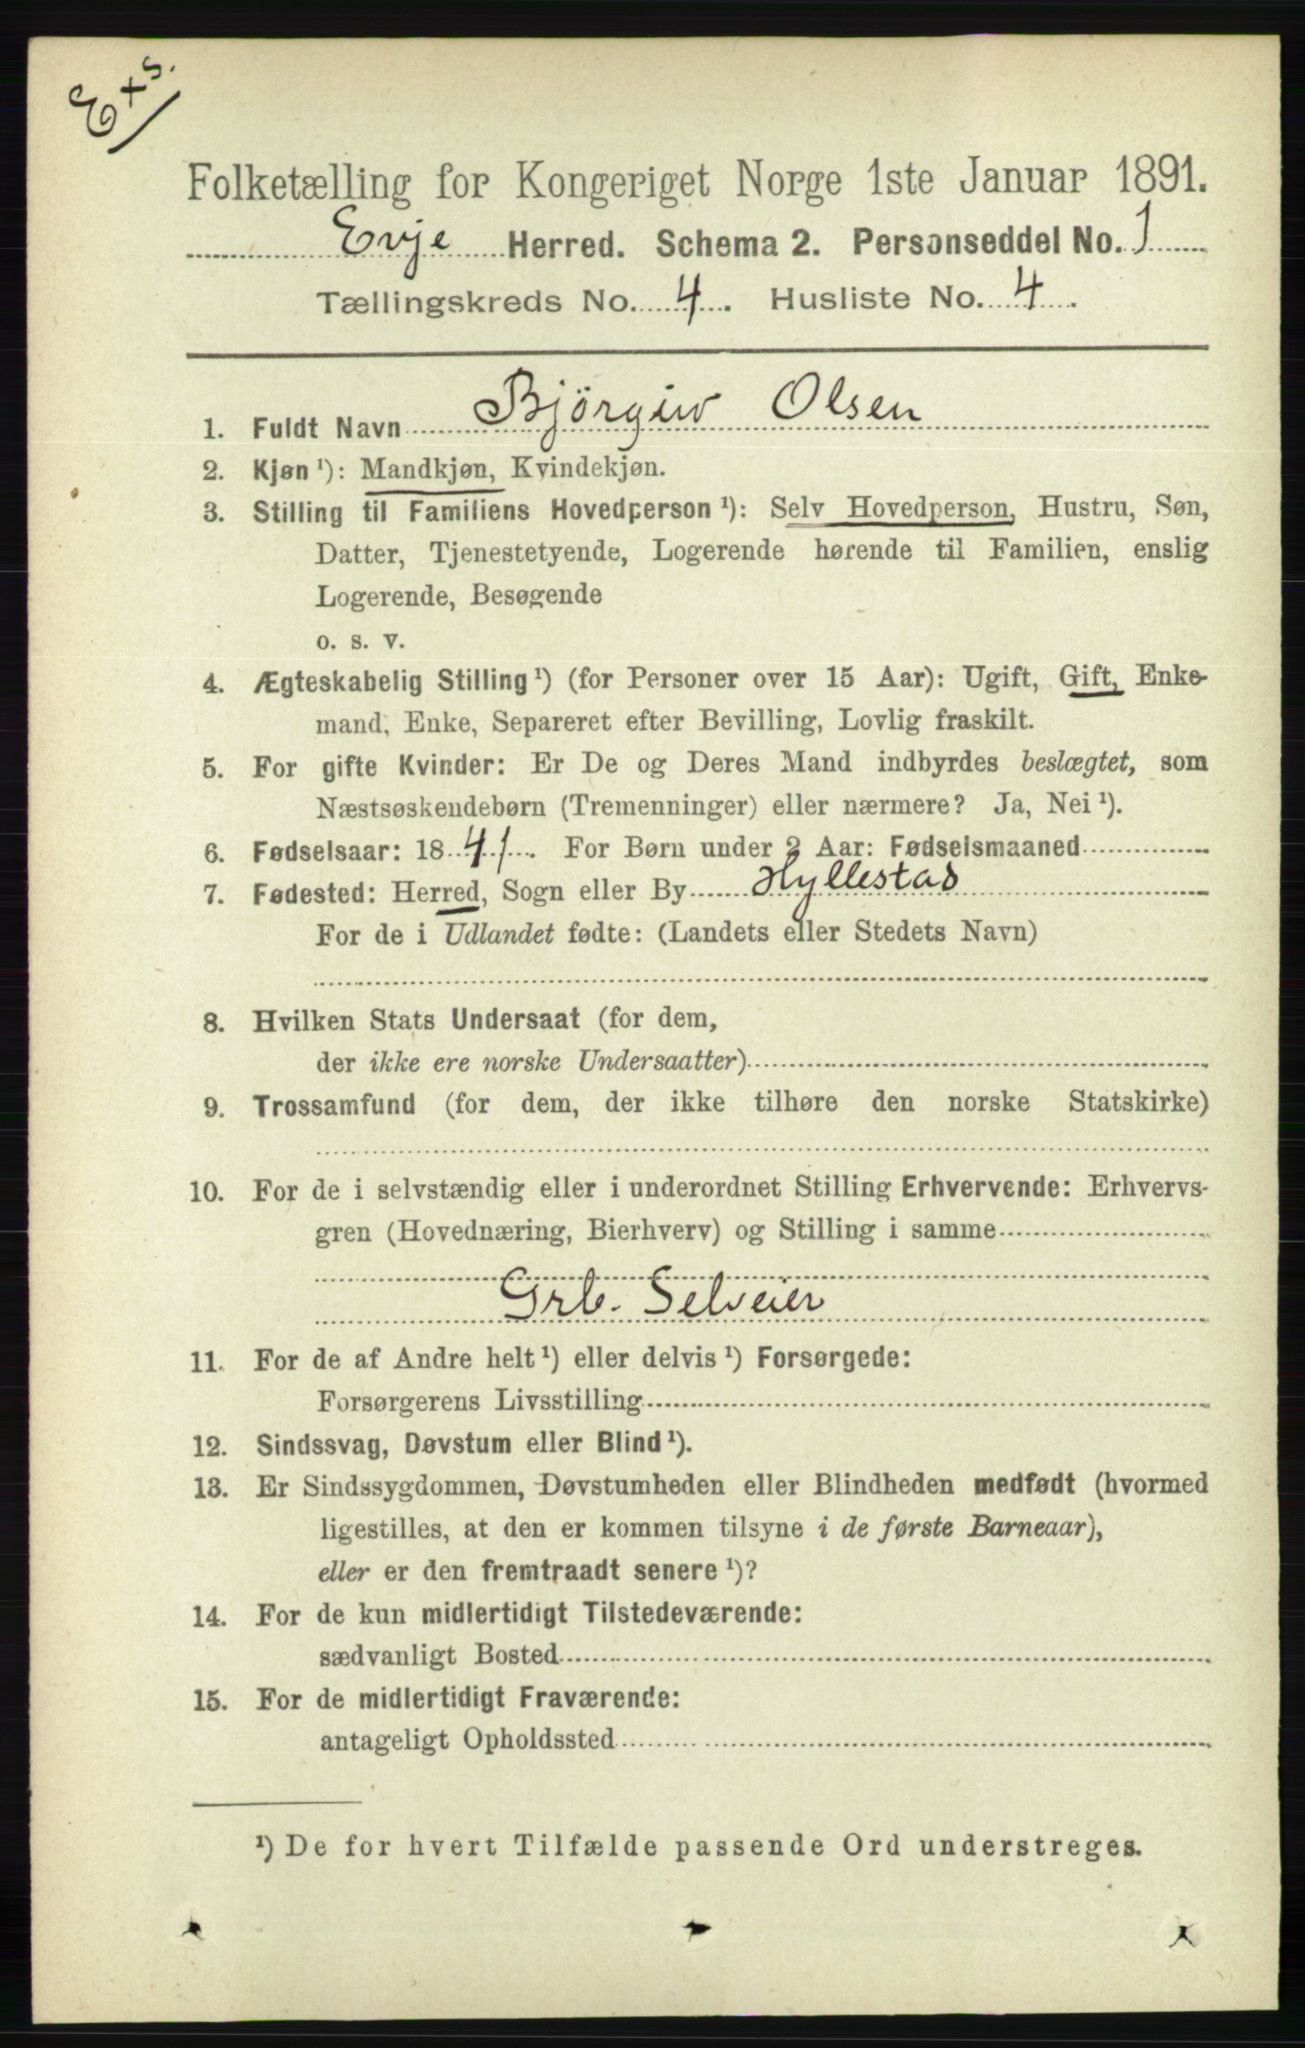 Exs.
Folketælling for Kongeriget Norge 1ste Januar 1891.
Evje Herred. Schema 2. Personseddel No. 1
Tællingskreds No. 4. Husliste No. 4.
1. Fuldt Navn Bjørguv Olsen
2. Kjøn ¹): Mandkjøn, Kvindekjøn.
3. Stilling til Familiens Hovedperson ¹): Selv Hovedperson, Hustru, Søn,
Datter, Tjenestetyende, Logerende hørende til Familien, enslig
Logerende, Besøgende
o. s. v.
4. Ægteskabelig Stilling ¹) (for Personer over 15 Aar): Ugift, Gift, Enke-
mand, Enke, Separeret efter Bevilling, Lovlig fraskilt.
5. For gifte Kvinder: Er De og Deres Mand indbyrdes beslægtet, som
Næstsøskendebørn (Tremenninger) eller nærmere? Ja, Nei ¹).
6. Fødselsaar: 1841. For Børn under 2 Aar: Fødselsmaaned
7. Fødested: Herred, Sogn eller By Hyllestad
For de i Udlandet fødte: (Landets eller Stedets Navn)
8. Hvilken Stats Undersaat (for dem,
der ikke ere norske Undersaatter)
9. Trossamfund (for dem, der ikke tilhøre den norske Statskirke)
10. For de i selvstændig eller i underordnet Stilling Erhvervende: Erhvervs-
gren (Hovednæring, Bierhverv) og Stilling i samme
Grb. Selveier
11. For de af Andre helt ¹) eller delvis ¹) Forsørgede:
Forsørgerens Livsstilling
12. Sindssvag, Døvstum eller Blind ¹).
13. Er Sindssygdommen, Døvstumheden eller Blindheden medfødt (hvormed
ligestilles, at den er kommen tilsyne i de første Barneaar),
eller er den fremtraadt senere ¹)?
14. For de kun midlertidigt Tilstedeværende:
sædvanligt Bosted
15. For de midlertidigt Fraværende:
antageligt Opholdssted
¹) De for hvert Tilfælde passende Ord understreges.